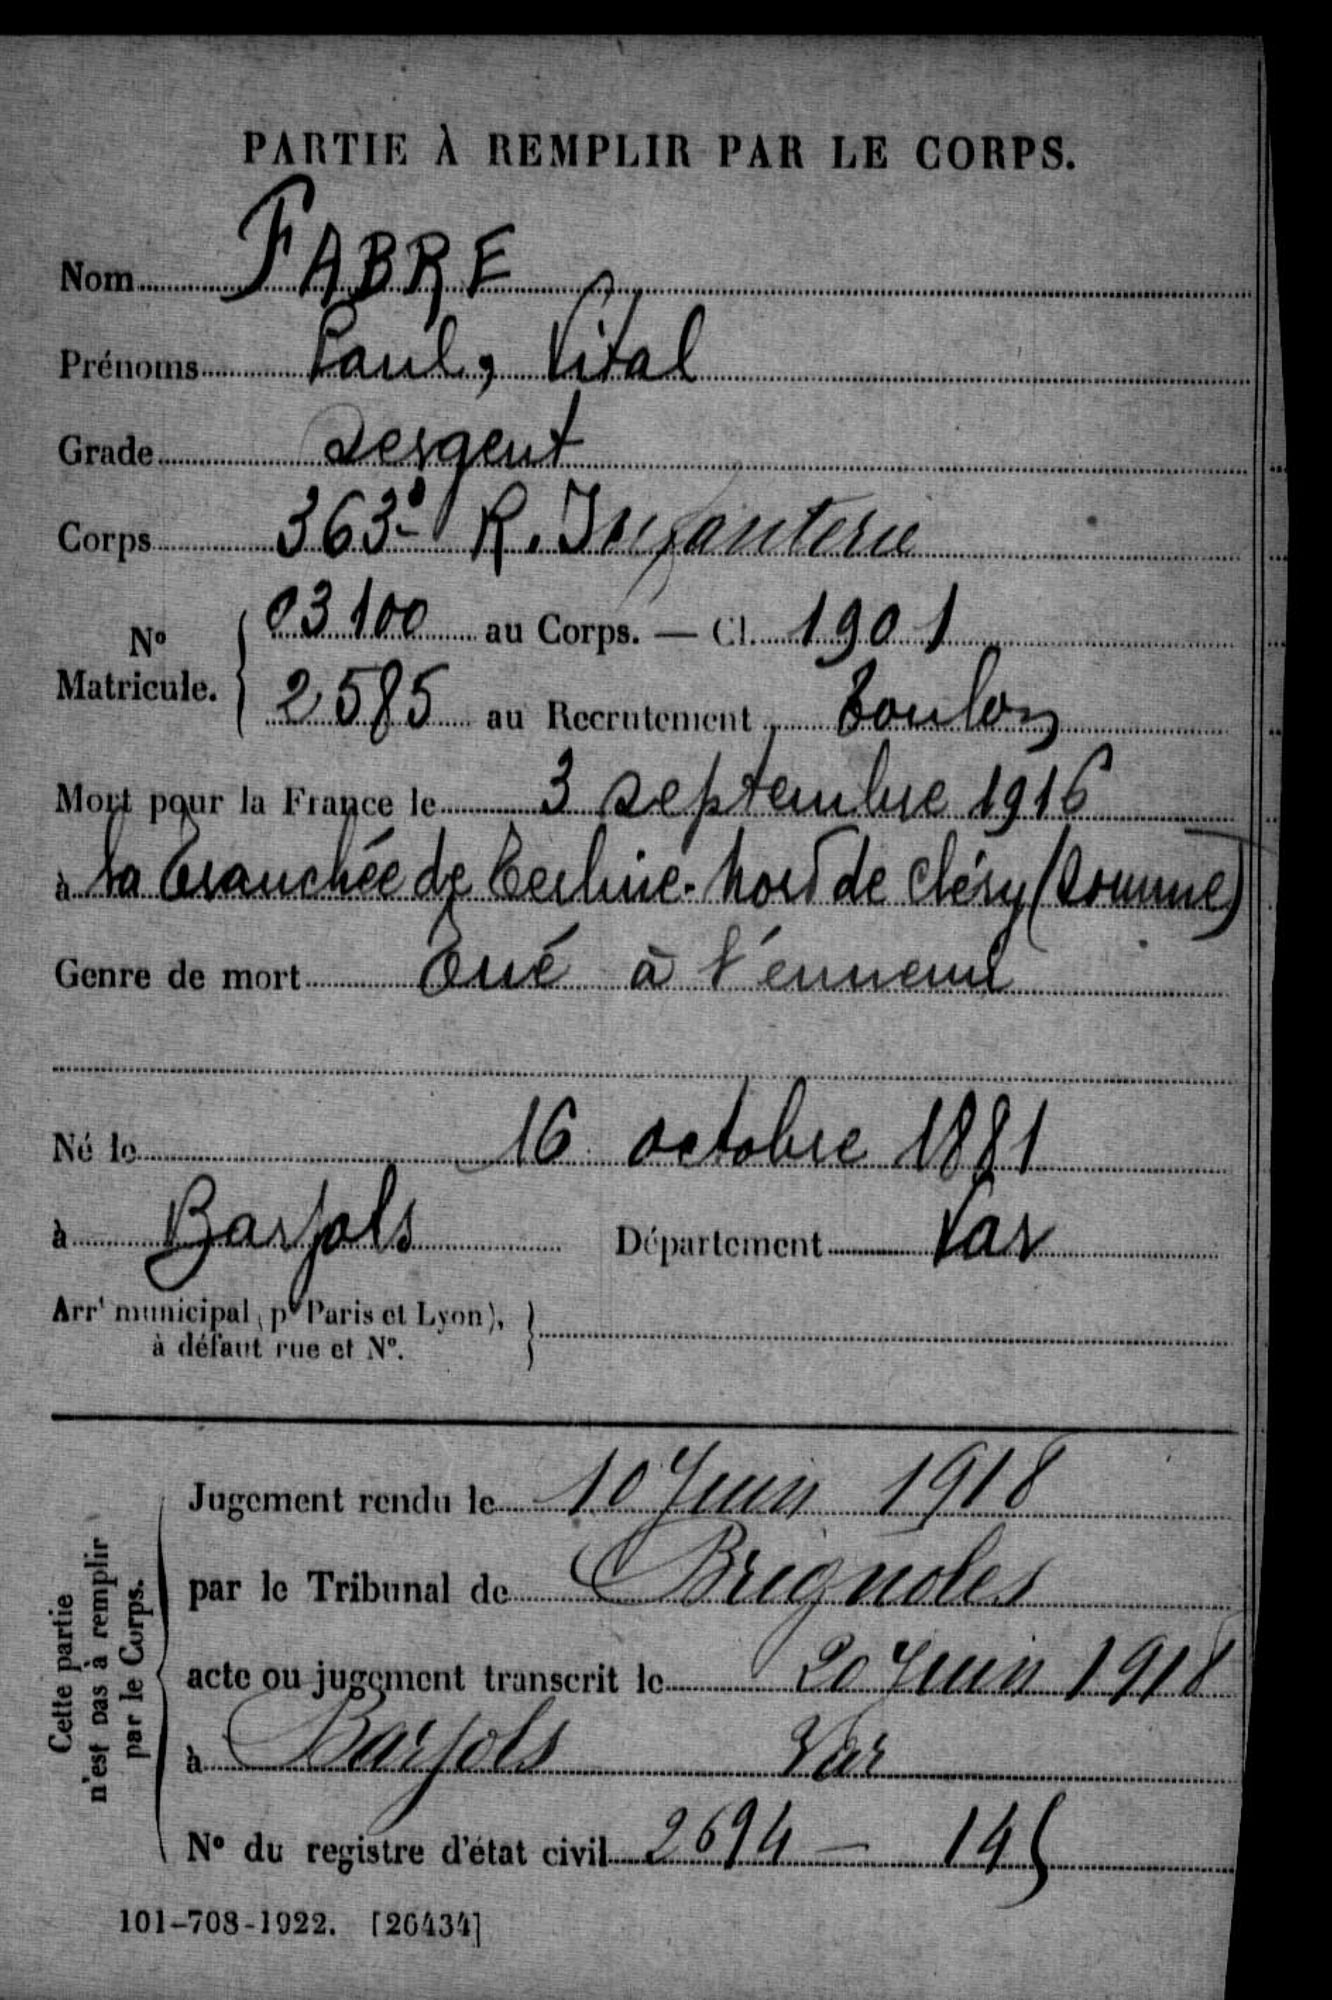 PARTIE À REMPLIR PAR LE CORPS.
Nom FABRE
Prénoms Paul, Vital
Grade Sergent
Corps 363e R. Infanterie
N° Matricule. 03100 au Corps. — Cl. 1901
2585 au Recrutement Toulon
Mort pour la France le 3 septembre 1916
à la Tranchée de Nord de Cléry (Somme)
Genre de mort Tué à l'ennemi
Né le 16 octobre 1881
à Barjols Département Var
Arrt municipal (pr Paris et Lyon),
à défaut rue et N°.
Cette partie
n'est pas à remplir
par le Corps.
Jugement rendu le 10 Juin 1918
par le Tribunal de Brignoles
acte ou jugement transcrit le 20 Juin 1918
à Barjols Var
N° du registre d'état civil 2694 — 145
101-708-1922. [26434]